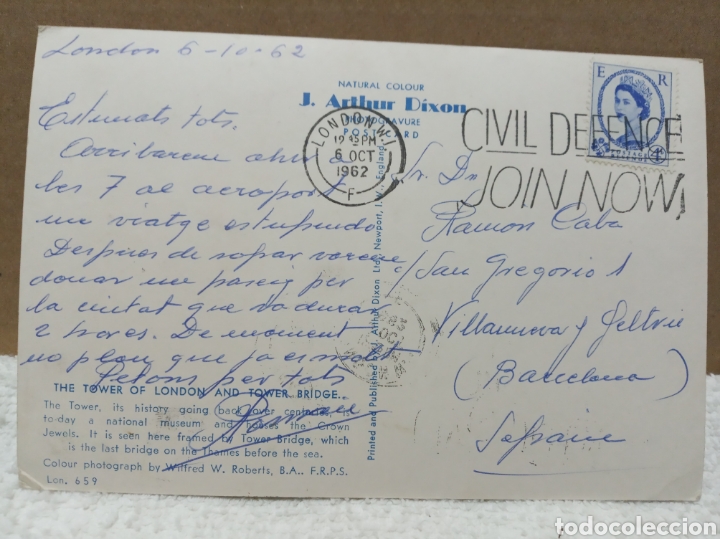 London 6-10-62
NATURAL COLOUR
J. Arthur Dixon
PHOTOGRAVURE
POST CARD
E R
POSTAGE
LONDON. W.1.
12 45 PM
6 OCT
1962
F
CIVIL DEFENCE
JOIN NOW
Estimats tots.
Arribarem ahir a
les 7 al aeroport
un viatge estupendo
Despres de sopar varem
donar un passeig per
la ciutat que va durar
2 hores. De moment
no plou que ja es molt
Petons per tots
Sr. Dn
Ramon Caba
c/ San Gregorio 1
Villanueva y Geltrú
(Barcelona)
Printed and Published by J. Arthur Dixon Ltd., Newport, I.W., England.
THE TOWER OF LONDON AND TOWER BRIDGE.
The Tower, its history going back over centuries, is
to-day a national museum and houses the Crown
Jewels. It is seen here framed by Tower Bridge, which
is the last bridge on the Thames before the sea.
Colour photograph by Wilfred W. Roberts, B.A., F.R.P.S.
Lon. 659
todocoleccion